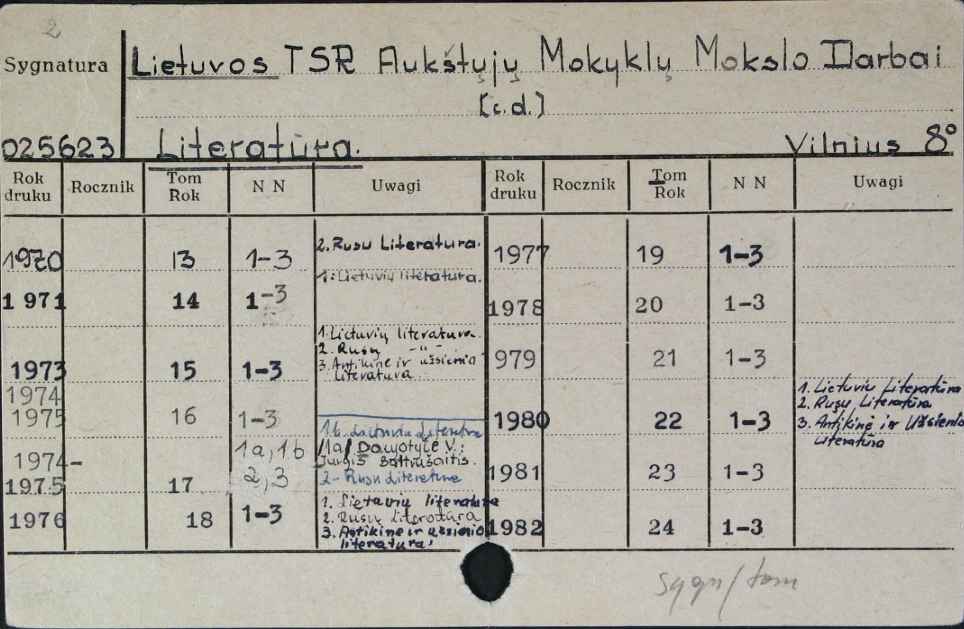 2
Sygnatura Lietuvos TSR Aukštųjų Mokyklų Mokslo Darbai
[c.d.]
025623 Literatūra. Vilnius 8°
Rok druku Rocznik Tom Rok N N Uwagi Rok druku Rocznik Tom Rok N N Uwagi
1970 13 1-3 2. Rusu Literatura. 1977 19 1-3
1. Lietuvių literatura.
1971 14 1-3 1978 20 1-3
1. Lietuvių literatura
2. Rusų -"-
1973 15 1-3 3. Antikinė ir užsienio literatura 979 21 1-3
1974
1975 16 1-3 1980 22 1-3 1. Lietuvių Literatūra
2. Rusų Literatūra
3. Antikinė ir Užsienio Literatūra
1b. Lietuvių Literatura
1974- 1a, 1b 1a/ Daujotytė V.:
Jurgis Baltrušaitis.
1975 17 2,3 2- Rusu Literatura 1981 23 1-3
1976 18 1-3 1. Lietuvių literatura
2. Rusų Literatūra
3. Antikinė ir užsienio literatura 1982 24 1-3
sygn/tom